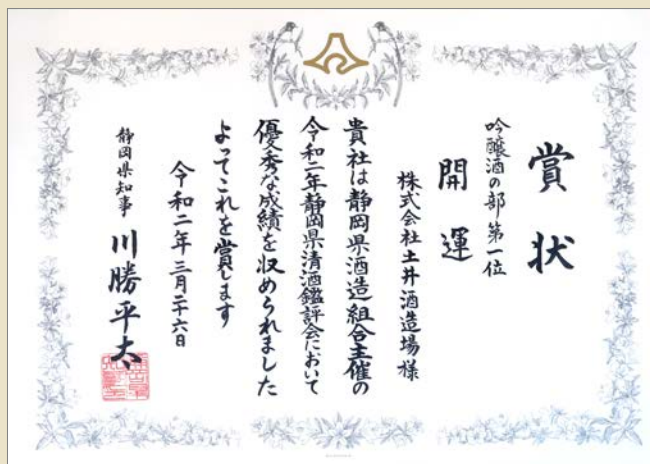 賞状
吟醸酒の部第一位
開運
株式会社土井酒造場様
貴社は静岡県酒造組合主催の
令和二年静岡県清酒鑑評会において
優秀な成績を収められました
よってこれを賞します
令和二年三月二十六日
静岡県知事 川勝平太